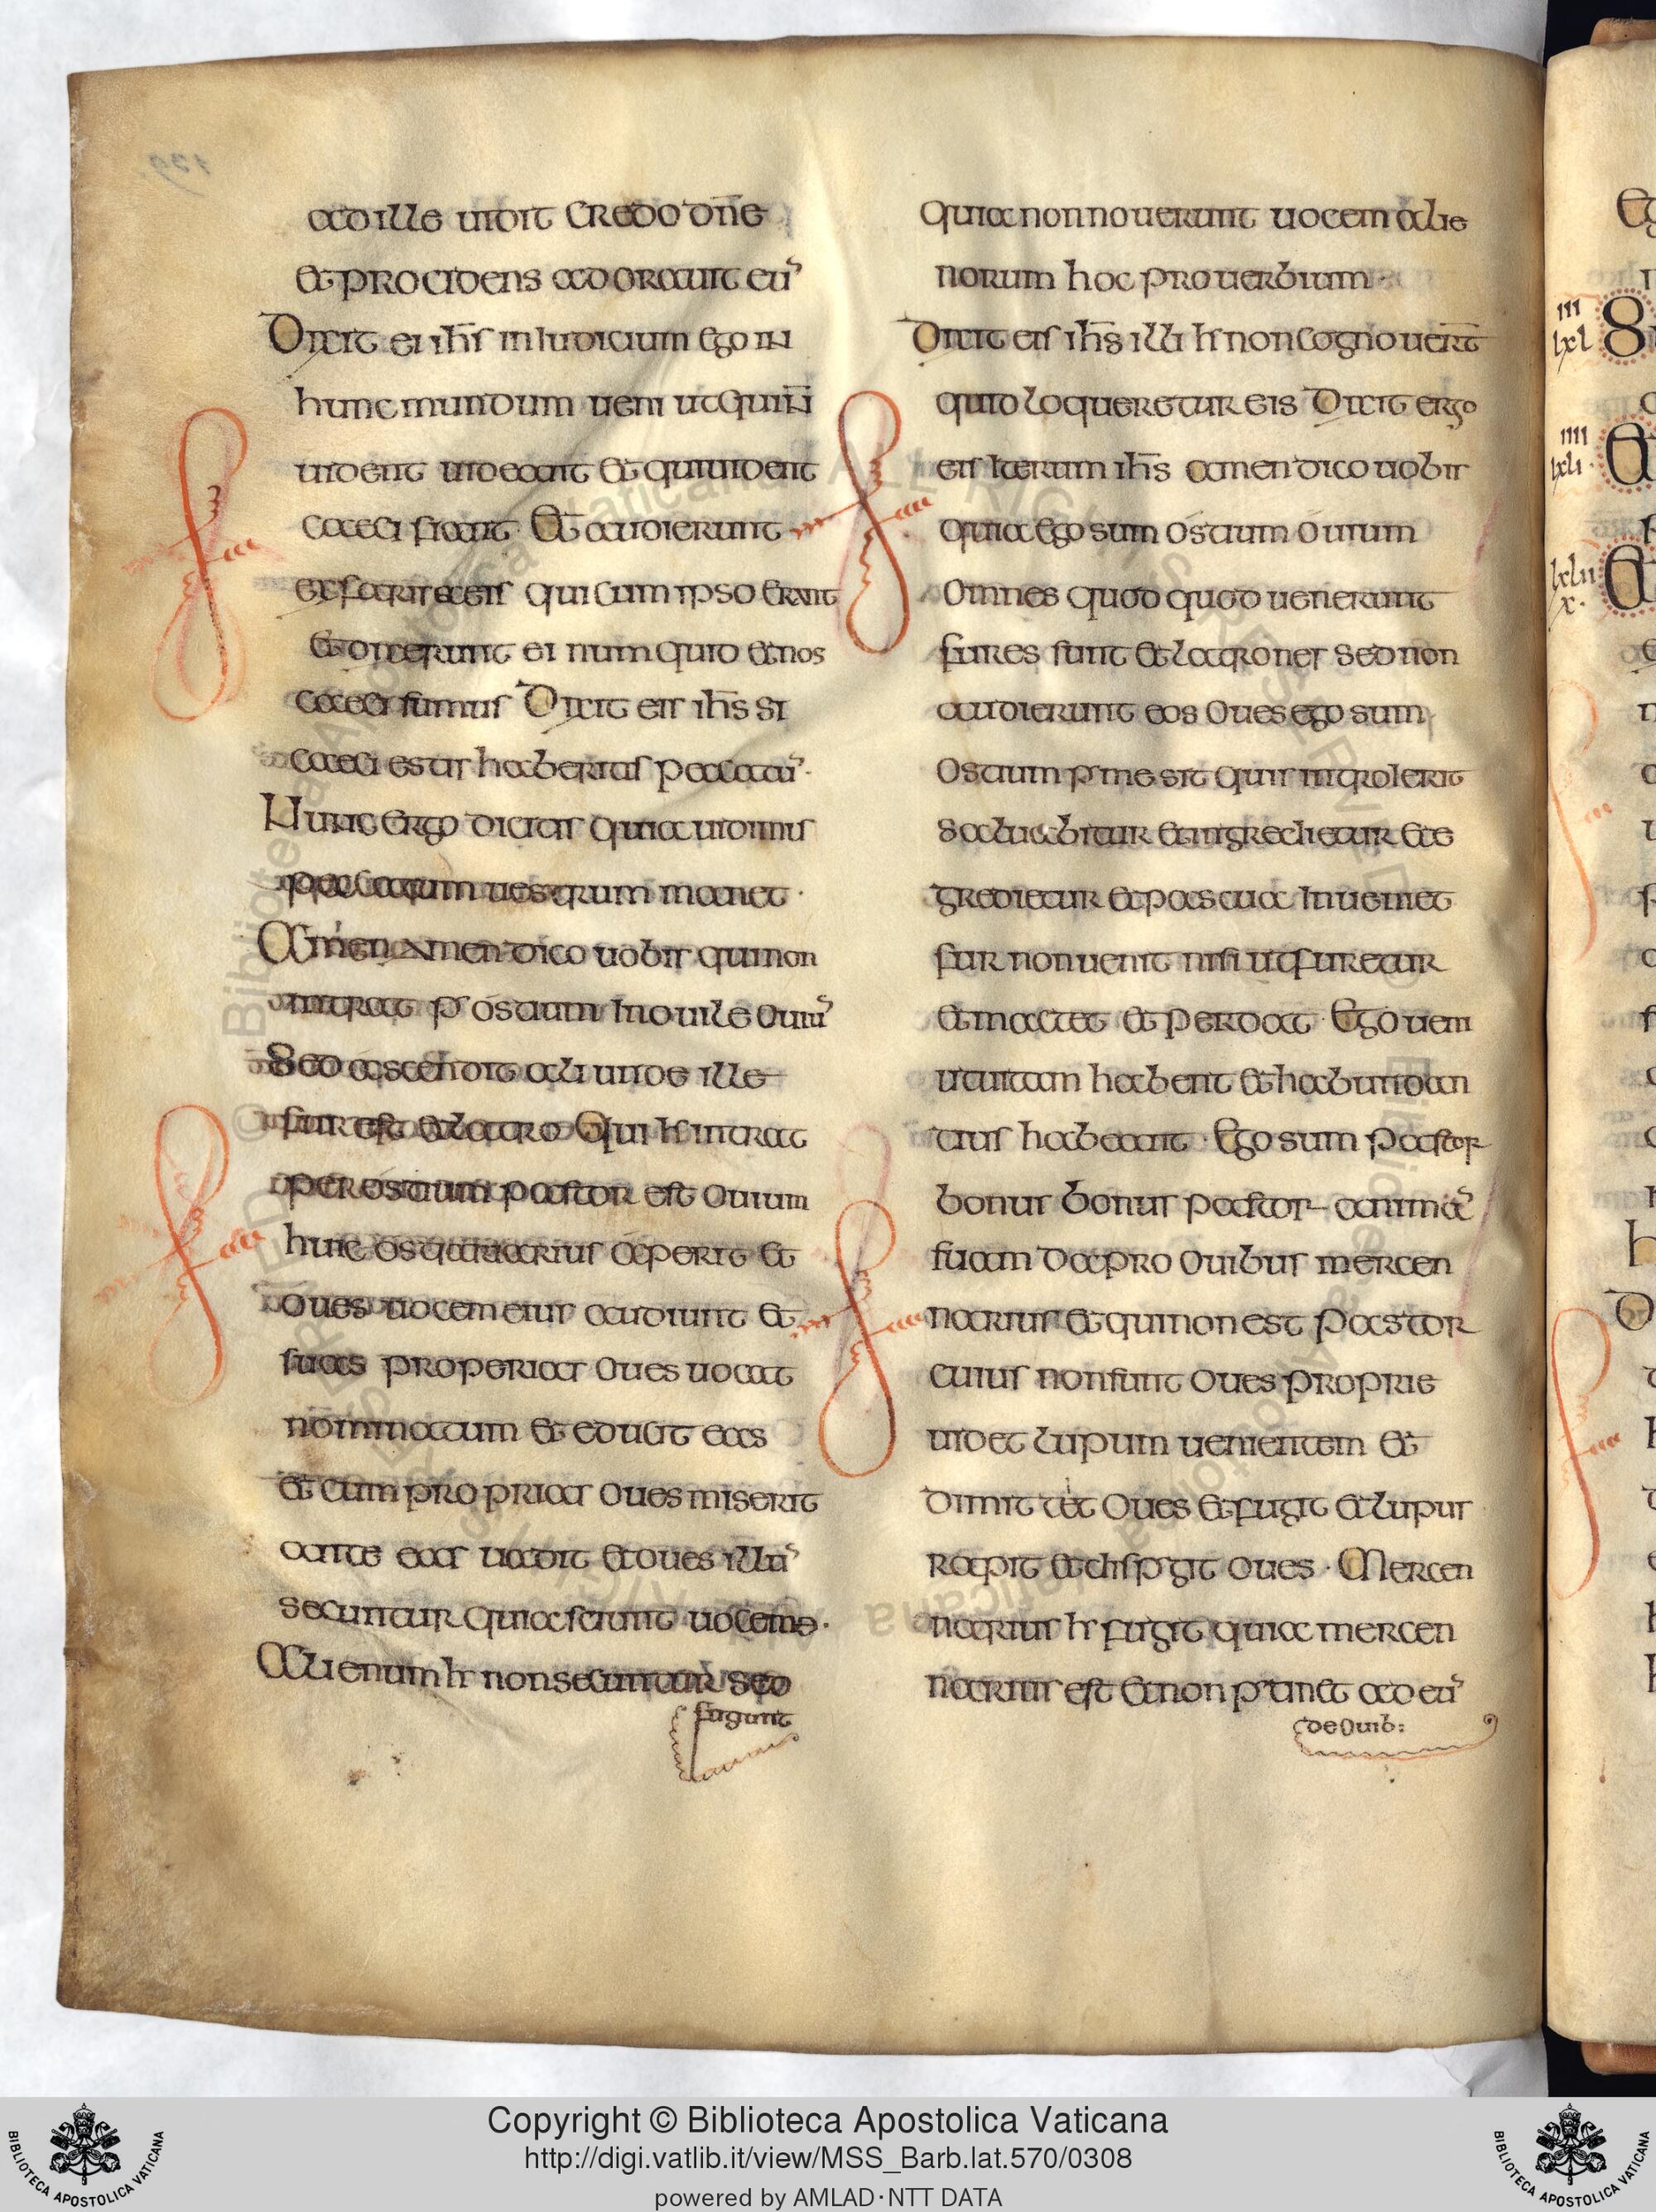 ad ille uidit Credo dn̄e
et procidens adorauit eū
Dixit ei ih̄s in Iudicium ego in
hunc mundum ueni ut qui n̄
uident uideant et qui uident
caeci fiant Et audierunt
ex farisaeis qui cum ipso erant
et dixerunt ei numquid et nos
caeci sumus Dixit eis ih̄s si
caeci estis haberitis peccatū·
Nunc ergo dicitis quia uidimus
peccatum uestrum manet ·
Amen amen dico uobis qui non
intrat p̄ ostium In ouile ouiū
Sed ascendit ali unde ille
fur est et latro Qui h̄ intrat
per ostium pastor est ouium
huic ostiarius aperit et
oues uocem eius audiunt et
suas properias oues uocat
nominatum et educit eas
et cum proprias oues miserit
ante eas uadit et oues illū
secuntur quia sciunt uocem e·
Alienum h̄ non secuntur sed
fugunt
quia non nouerunt uocem alie
norum hoc prouerbium ·
Dixit eis ih̄s illi h̄ non cognouer̄t
quid loqueretur eis Dixit ergo
eis Iterum ih̄s amen dico uobis
quia ego sum ostium ouium
Omnes quodquod uenerunt
fures sunt et latrones sed non
audierunt eos oues ego sum
Ostium p̄ me si quis introierit
saluabitur et ingredietur et e
gredietur et pascua Inueniet
fur non uenit nisi ut furetur
et mactet et perdat Ego ueni
ut uitam habent et habundan
tius habeant · Ego sum pastor
bonus bonus pastor animā
suam dat pro ouibus mercen
narius et qui non est pastor
cuius non sunt oues proprie
uidet lupum uenientem et
dimittet oues et fugit et lupus
rapit et dispgit oues · Mercen
narius h̄ fugit quia mercen
narius est et non p̄tinet ad eū
de ouib:
Copyright © Biblioteca Apostolica Vaticana
http://digi.vatlib.it/view/MSS_Barb.lat.570/0308
powered by AMLAD·NTT DATA